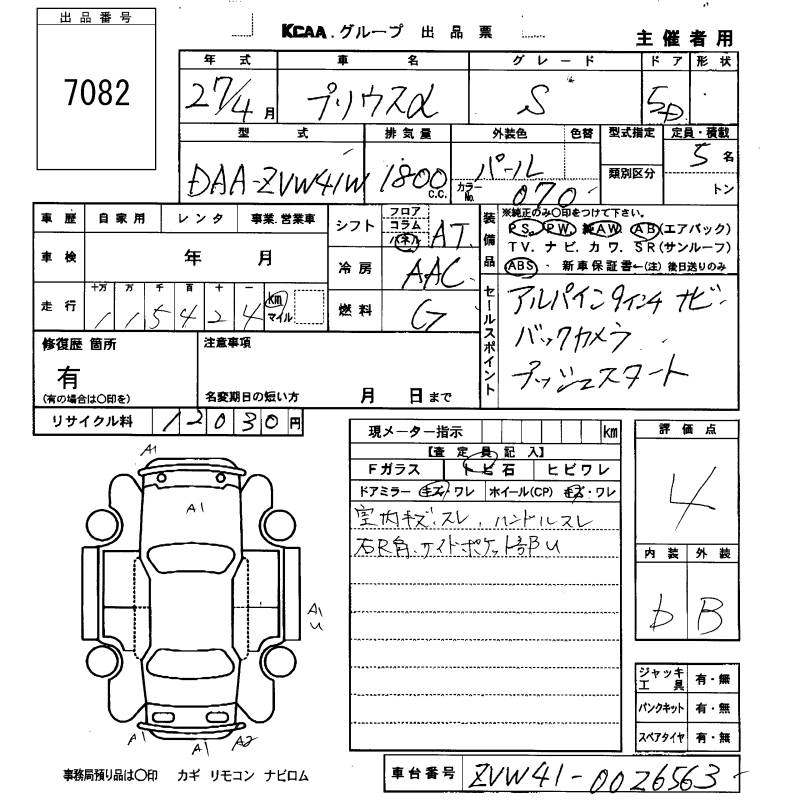 出品番号
7082
KCAA.グループ 出品票
主催者用
年式 車名 グレード ドア 形状
27/4月 プリウスα S 5D
型式 排気量 外装色 色替 型式指定 定員・積載
DAA-ZVW41W 1800 C.C. パール 類別区分 5名
カラーNo. 070 トン
車歴 自家用 レンタ 事業.営業車
車検 年 月
走行 十万 万 千 百 十 一
115424 km マイル
シフト フロア コラム パネル AT
冷房 AAC
燃料 G
装備品 ※純正のみ〇印をつけて下さい。
PS. PW. 純AW. AB(エアバック)
TV. ナビ. カワ. SR(サンルーフ)
ABS 新車保証書←(注) 後日送りのみ
セールスポイント
アルパイン9インチ ナビ
バックカメラ
プッシュスタート
修復歴 箇所
有
(有の場合は〇印を)
注意事項
名変期日の短い方 月 日まで
リサイクル料 12030円
現メーター指示 km
【査定員記入】
Fガラス トビ石 ヒビワレ
ドアミラー キズ・ワレ ホイール(CP) キズ・ワレ
室内キズ.スレ、ハンドルスレ
右R角.サイドポケット部U
評価点
4
内装 外装
b B
A1
A1
A1
U
A1 A1 A2
ジャッキ工具 有・無
パンクキット 有・無
スペアタイヤ 有・無
事務局預り品は〇印 カギ リモコン ナビロム
車台番号 ZVW41-0026563-